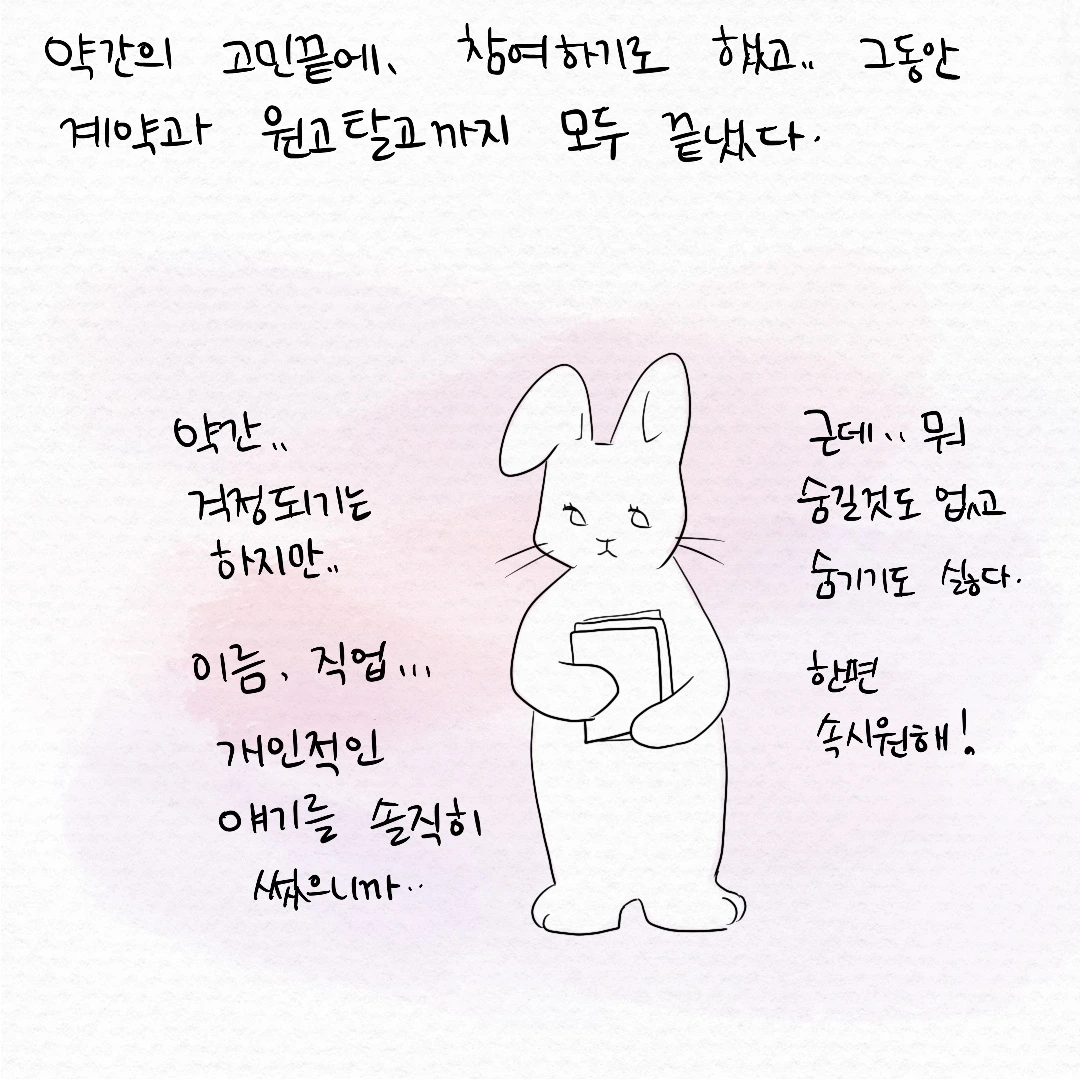 약간의 고민끝에, 참여하기로 했고.. 그동안
계약과 원고탈고까지 모두 끝냈다.
약간..
걱정되기는
하지만..
이름, 직업...
개인적인
얘기를 솔직히
썼으니까..
근데.. 뭐
숨길것도 없고
숨기기도 싫다.
한편
속시원해!